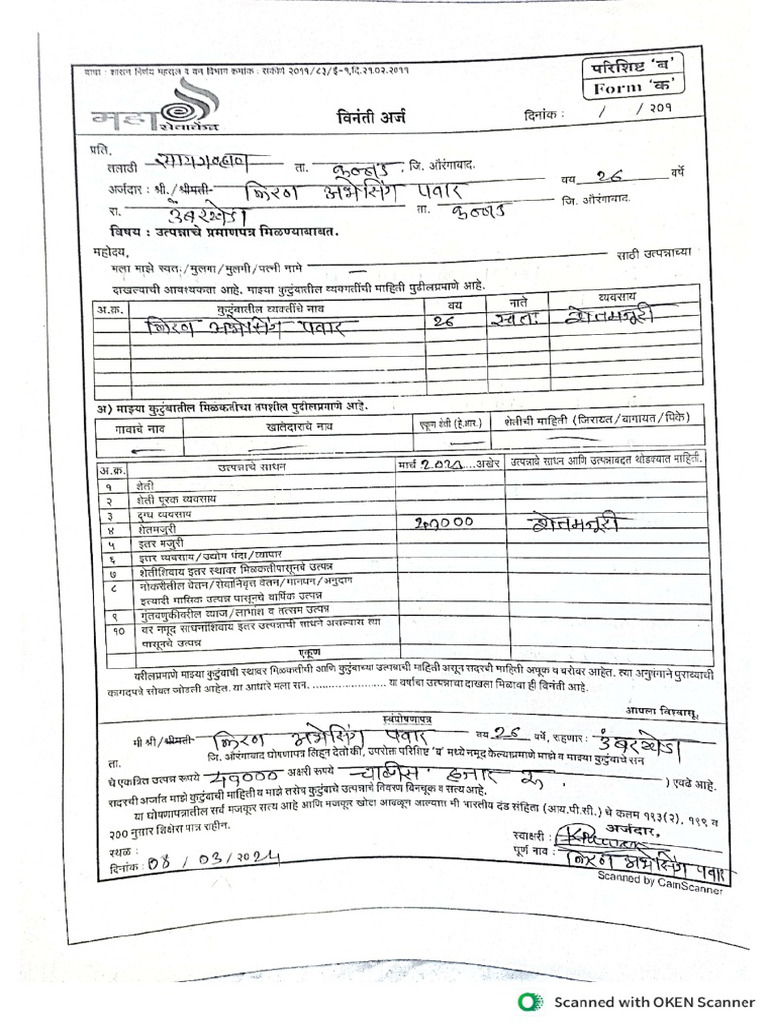 वाचा : शासन निर्णय महसूल व वन विभाग क्रमांक : संकीर्ण २०११/८३/ई-१,दि.२१.०२.२०११
परिशिष्ट 'ब'
Form 'क'
महा
सेवाकेंद्र
विनंती अर्ज
दिनांक : / / २०१
प्रति,
तलाठी सायगव्हाण ता. कन्नड जि. औरंगाबाद.
अर्जदार : श्री./श्रीमती- किरण अभेसिंग पवार वय 26 वर्षे
रा. उंबरखेडा ता. कन्नड जि. औरंगाबाद.
विषय : उत्पन्नाचे प्रमाणपत्र मिळण्याबाबत.
महोदय,
मला माझे स्वतः/मुलगा/मुलगी/पत्नी नामे — साठी उत्पन्नाच्या
दाखल्याची आवश्यकता आहे. माझ्या कुटुंबातील व्यक्तींची माहिती पुढीलप्रमाणे आहे.
अ.क्र. कुटुंबातील व्यक्तींचे नाव वय नाते व्यवसाय
किरण अभेसिंग पवार 26 स्वतः शेतमजूरी
अ) माझ्या कुटुंबातील मिळकतीचा तपशील पुढीलप्रमाणे आहे.
गावाचे नाव खातेदाराचे नाव एकूण शेती (हे.आर.) शेतीची माहिती (जिरायत/बागायत/पिके)
— — — —
अ.क्र. उत्पन्नाचे साधन मार्च अखेर उत्पन्नाचे साधन आणि उत्पन्नाबद्दत थोडक्यात माहिती.
१ शेती
२ शेती पूरक व्यवसाय
३ दुग्ध व्यवसाय
४ शेतमजुरी शेतमजूरी
५ इतर मजुरी
६ इतर व्यवसाय/उद्योग धंदा/व्यापार
७ शेतीशिवाय इतर स्थावर मिळकतीपासूनचे उत्पन्न
८ नोकरीतील वेतन/सेवानिवृत्त वेतन/मानधन/अनुदान
इत्यादी मासिक उत्पन्न पासूनचे वार्षिक उत्पन्न
९ गुंतवणुकीवरील व्याज/लाभांश व तत्सम उत्पन्न
१० वर नमूद साधनांशिवाय इतर उत्पन्नाची साधने असल्यास त्या
पासूनचे उत्पन्न
एकूण
वरीलप्रमाणे माझ्या कुटुंबाची स्थावर मिळकतीची आणि कुटुंबाच्या उत्पन्नाची माहिती असून सदरची माहिती अचूक व बरोबर आहेत. त्या अनुषंगाने पुराव्याची
कागदपत्रे सोबत जोडली आहेत. या आधारे मला सन. ........................ या वर्षाचा उत्पन्नाचा दाखला मिळावा ही विनंती आहे.
आपला विश्वासू,
स्वंघोषणापत्र
मी श्री/श्रीमती- किरण अभेसिंग पवार वय 26 वर्षे, राहणार : उंबरखेडा
ता. जि. औरंगाबाद घोषणापत्र लिहून देतो की, उपरोक्त परिशिष्ट 'ब' मध्ये नमूद केल्याप्रमाणे माझे व माझ्या कुटुंबाचे सन
चे एकत्रित उत्पन्न रूपये अक्षरी रूपये चाळीस हजार रू. ) एवढे आहे.
सदरची अर्जात माझे कुटुंबाची माहिती व माझे तसेच कुटुंबाचे उत्पन्नाचे विवरण बिनचूक व सत्य आहे.
या घोषणापत्रातील सर्व मजकूर सत्य आहे आणि मजकूर खोटा आढळून आल्यास मी भारतीय दंड संहिता (आय.पी.सी.) चे कलम १९३(२), १९९ व
२०० नुसार शिक्षेस पात्र राहीन.
अर्जदार,
स्थळ : स्वाक्षरी :
दिनांक : 08 / 03/२०२४ पूर्ण नाव : किरण अभेसिंग पवार
Scanned by CamScanner
Scanned with OKEN Scanner